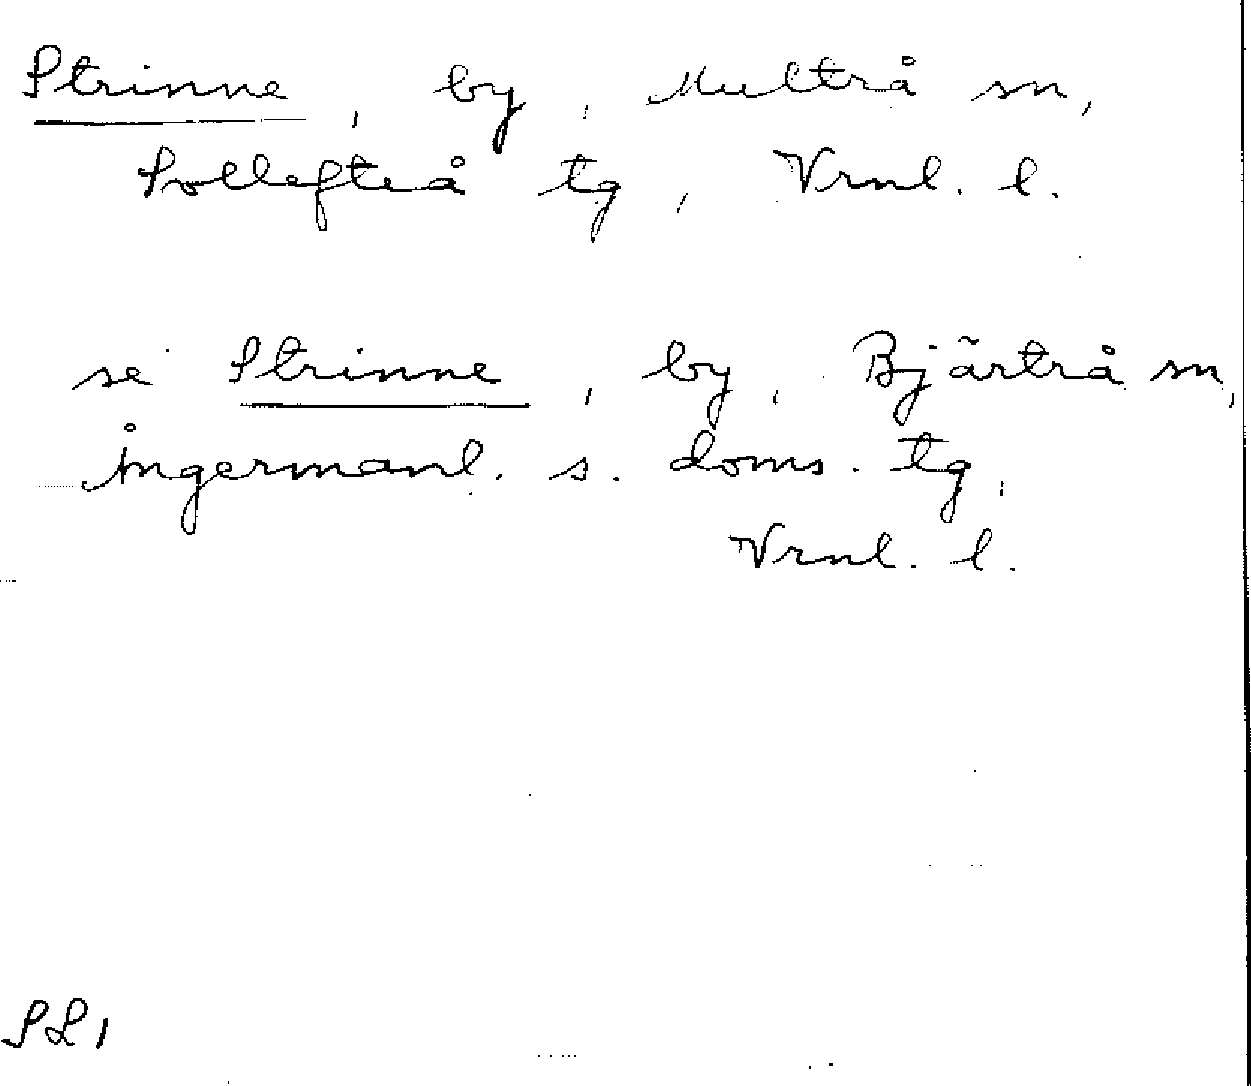 Strinne, by, Multrå sn,
Sollefteå tg, Vrnl. l.
se Strinne, by, Bjärtrå sn,
Ångermanl. s. doms. tg,
Vrnl. l.
SL,